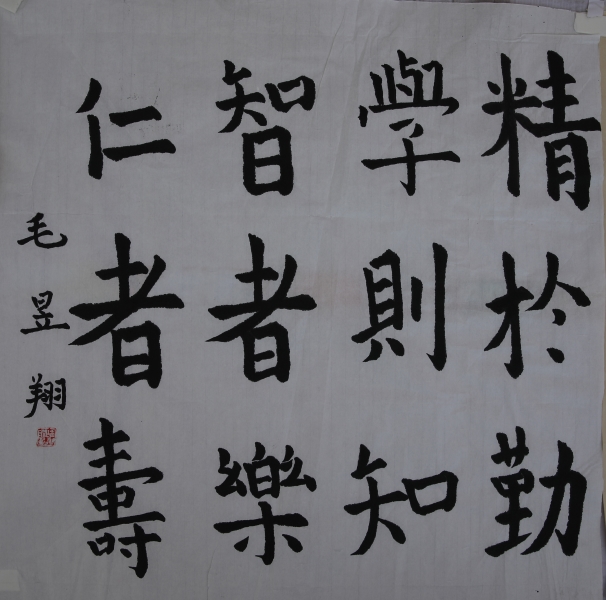 精於勤
學則知
智者樂
仁者壽
毛昱翔